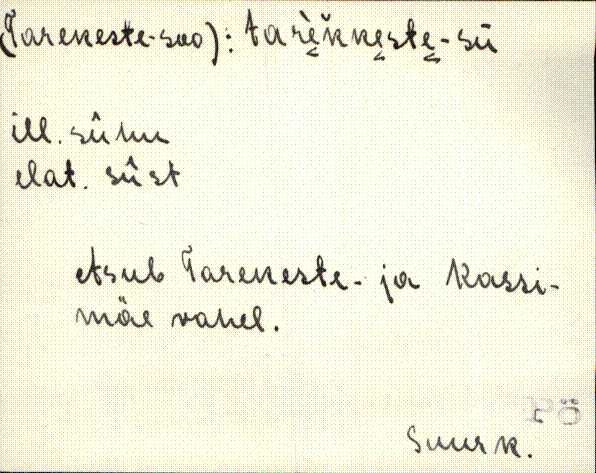 (Tarekeste-soo): tarè̬k̆ke̬ste̬-sū
ill. sûhu
elat. sûst
Asub Tarekeste- ja Kassi-
mäe vahel.
Põ
Suurk.